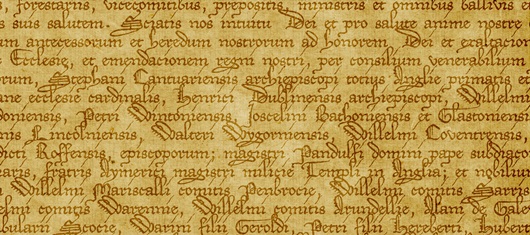 , forestariis, vicecomitibus, prepositis, ministris et omnibus ballivis e
s suis salutem. Sciatis nos intuitu Dei et pro salute anime nostre
um antecessorum et heredum nostrorum ad honorem Dei et exaltacio
e Ecclesie, et emendacionem regni nostri, per consilium venerabilium
rum, Stephani Cantuariensis archiepiscopi tocius Anglie primatis e
ne ecclesie cardinalis, Henrici Dublinensis archiepiscopi, Willelmi
doniensis, Petri Wintoniensis, Joscelini Bathoniensis et Glastoniensi
nis Lincolniensis, Walteri Wygorniensis, Willelmi Coventrensis,
icti Roffensis, episcoporum; magistri Pandulfi domini pape subdiaco
aris, fratris Aymerici magistri milicie Templi in Anglia; et nobilium
Willelmi Mariscalli comitis Penbrocie, Willelmi comitis
elmi comitis Warennie, Willelmi comitis Arundellie, Alani de Gale
bularii Scocie, Warini filii Geroldi, Petri filii Hereberti, Huber